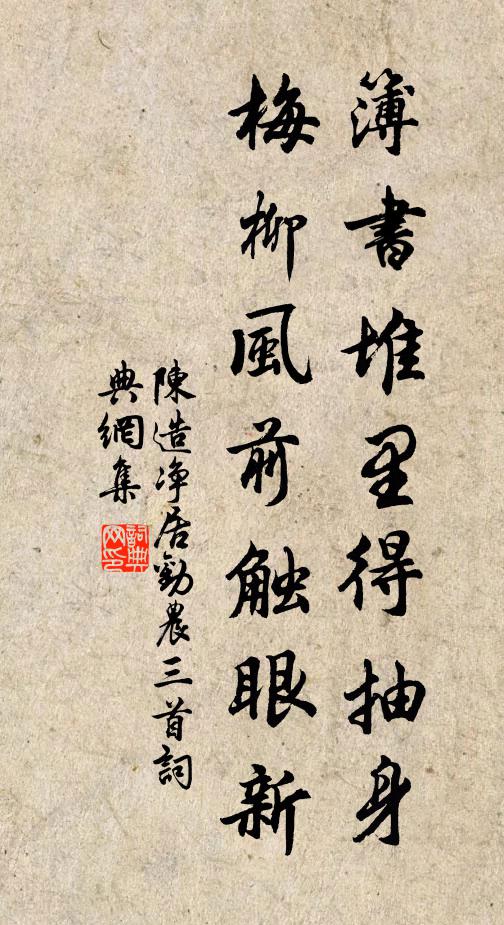 簿書堆里得抽身
梅柳風前触眼新
陳造净居勸農三首詞
典網集
詞典網印